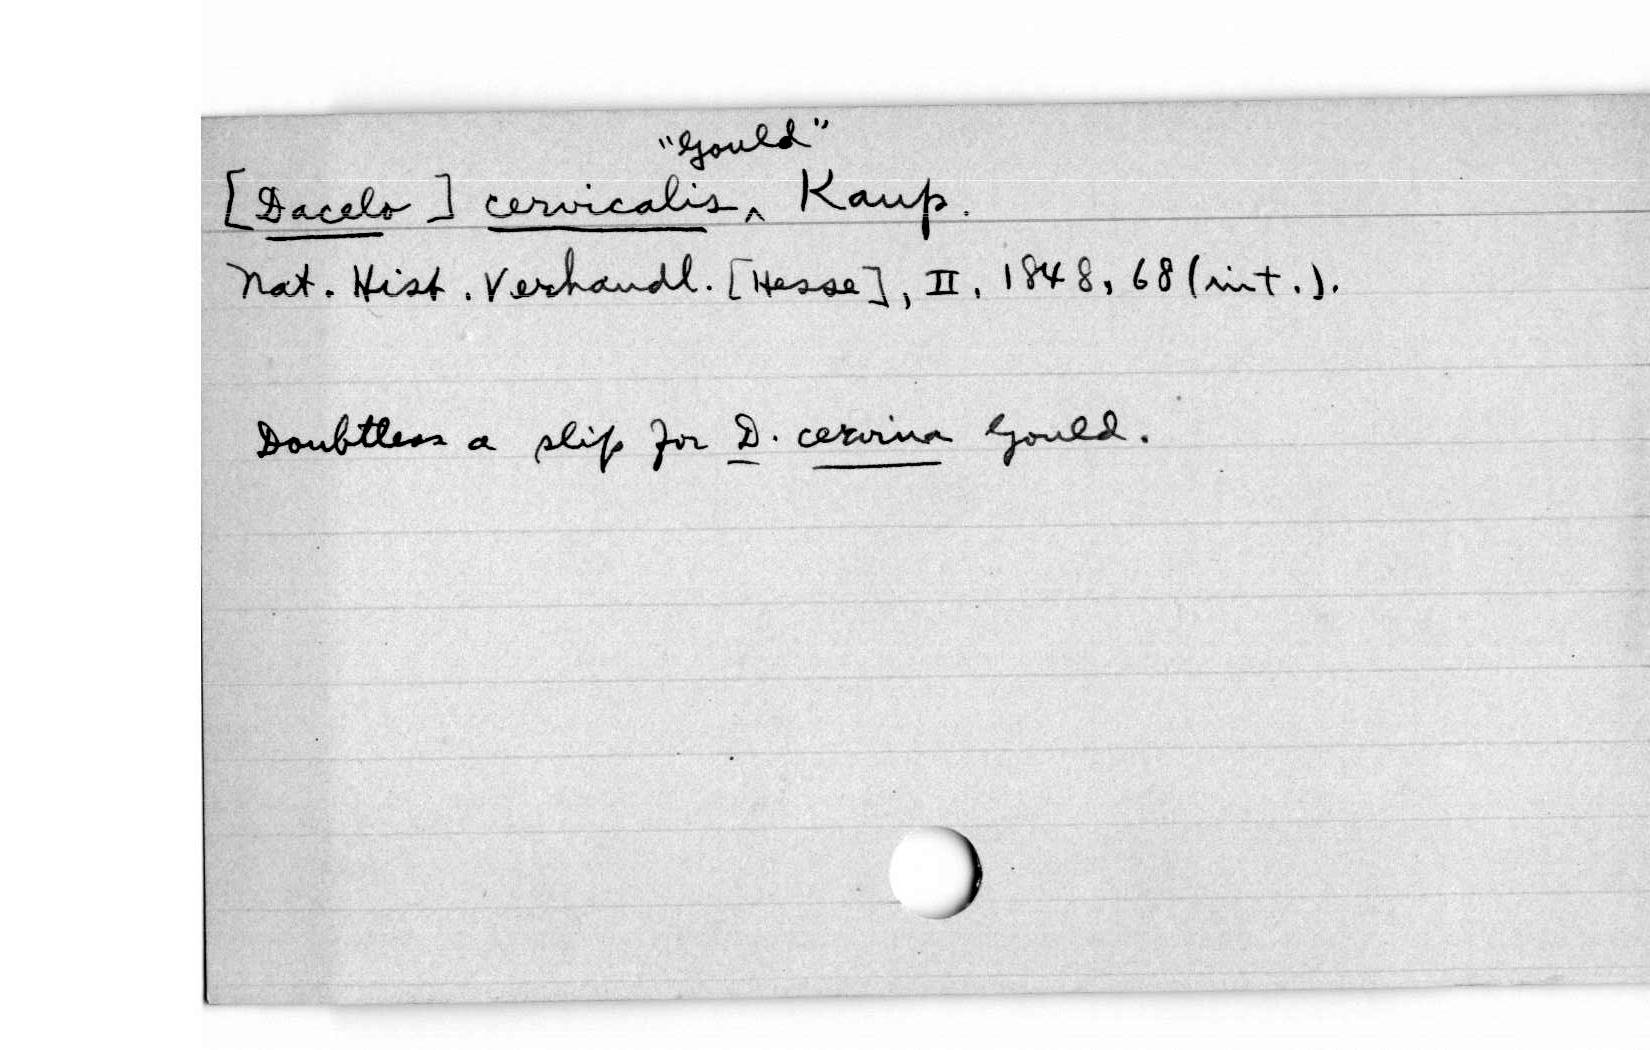 "Gould"
[Dacelo] cervicalis ^ Kaup.
Nat. Hist. Verhandl. [Hesse], II, 1848, 68 (in t.).
Doubtless a slip for D. cervina Gould.